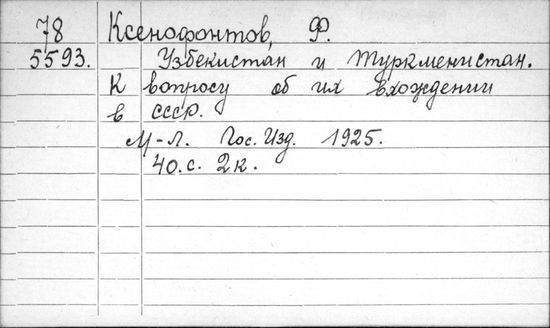 78 Ксенофонтов, Ф.
5593. Узбекистан и Туркменистан.
К вопросу об их вхождении
в СССР.
М-Л. Гос. Изд. 1925.
40. с. 2к.